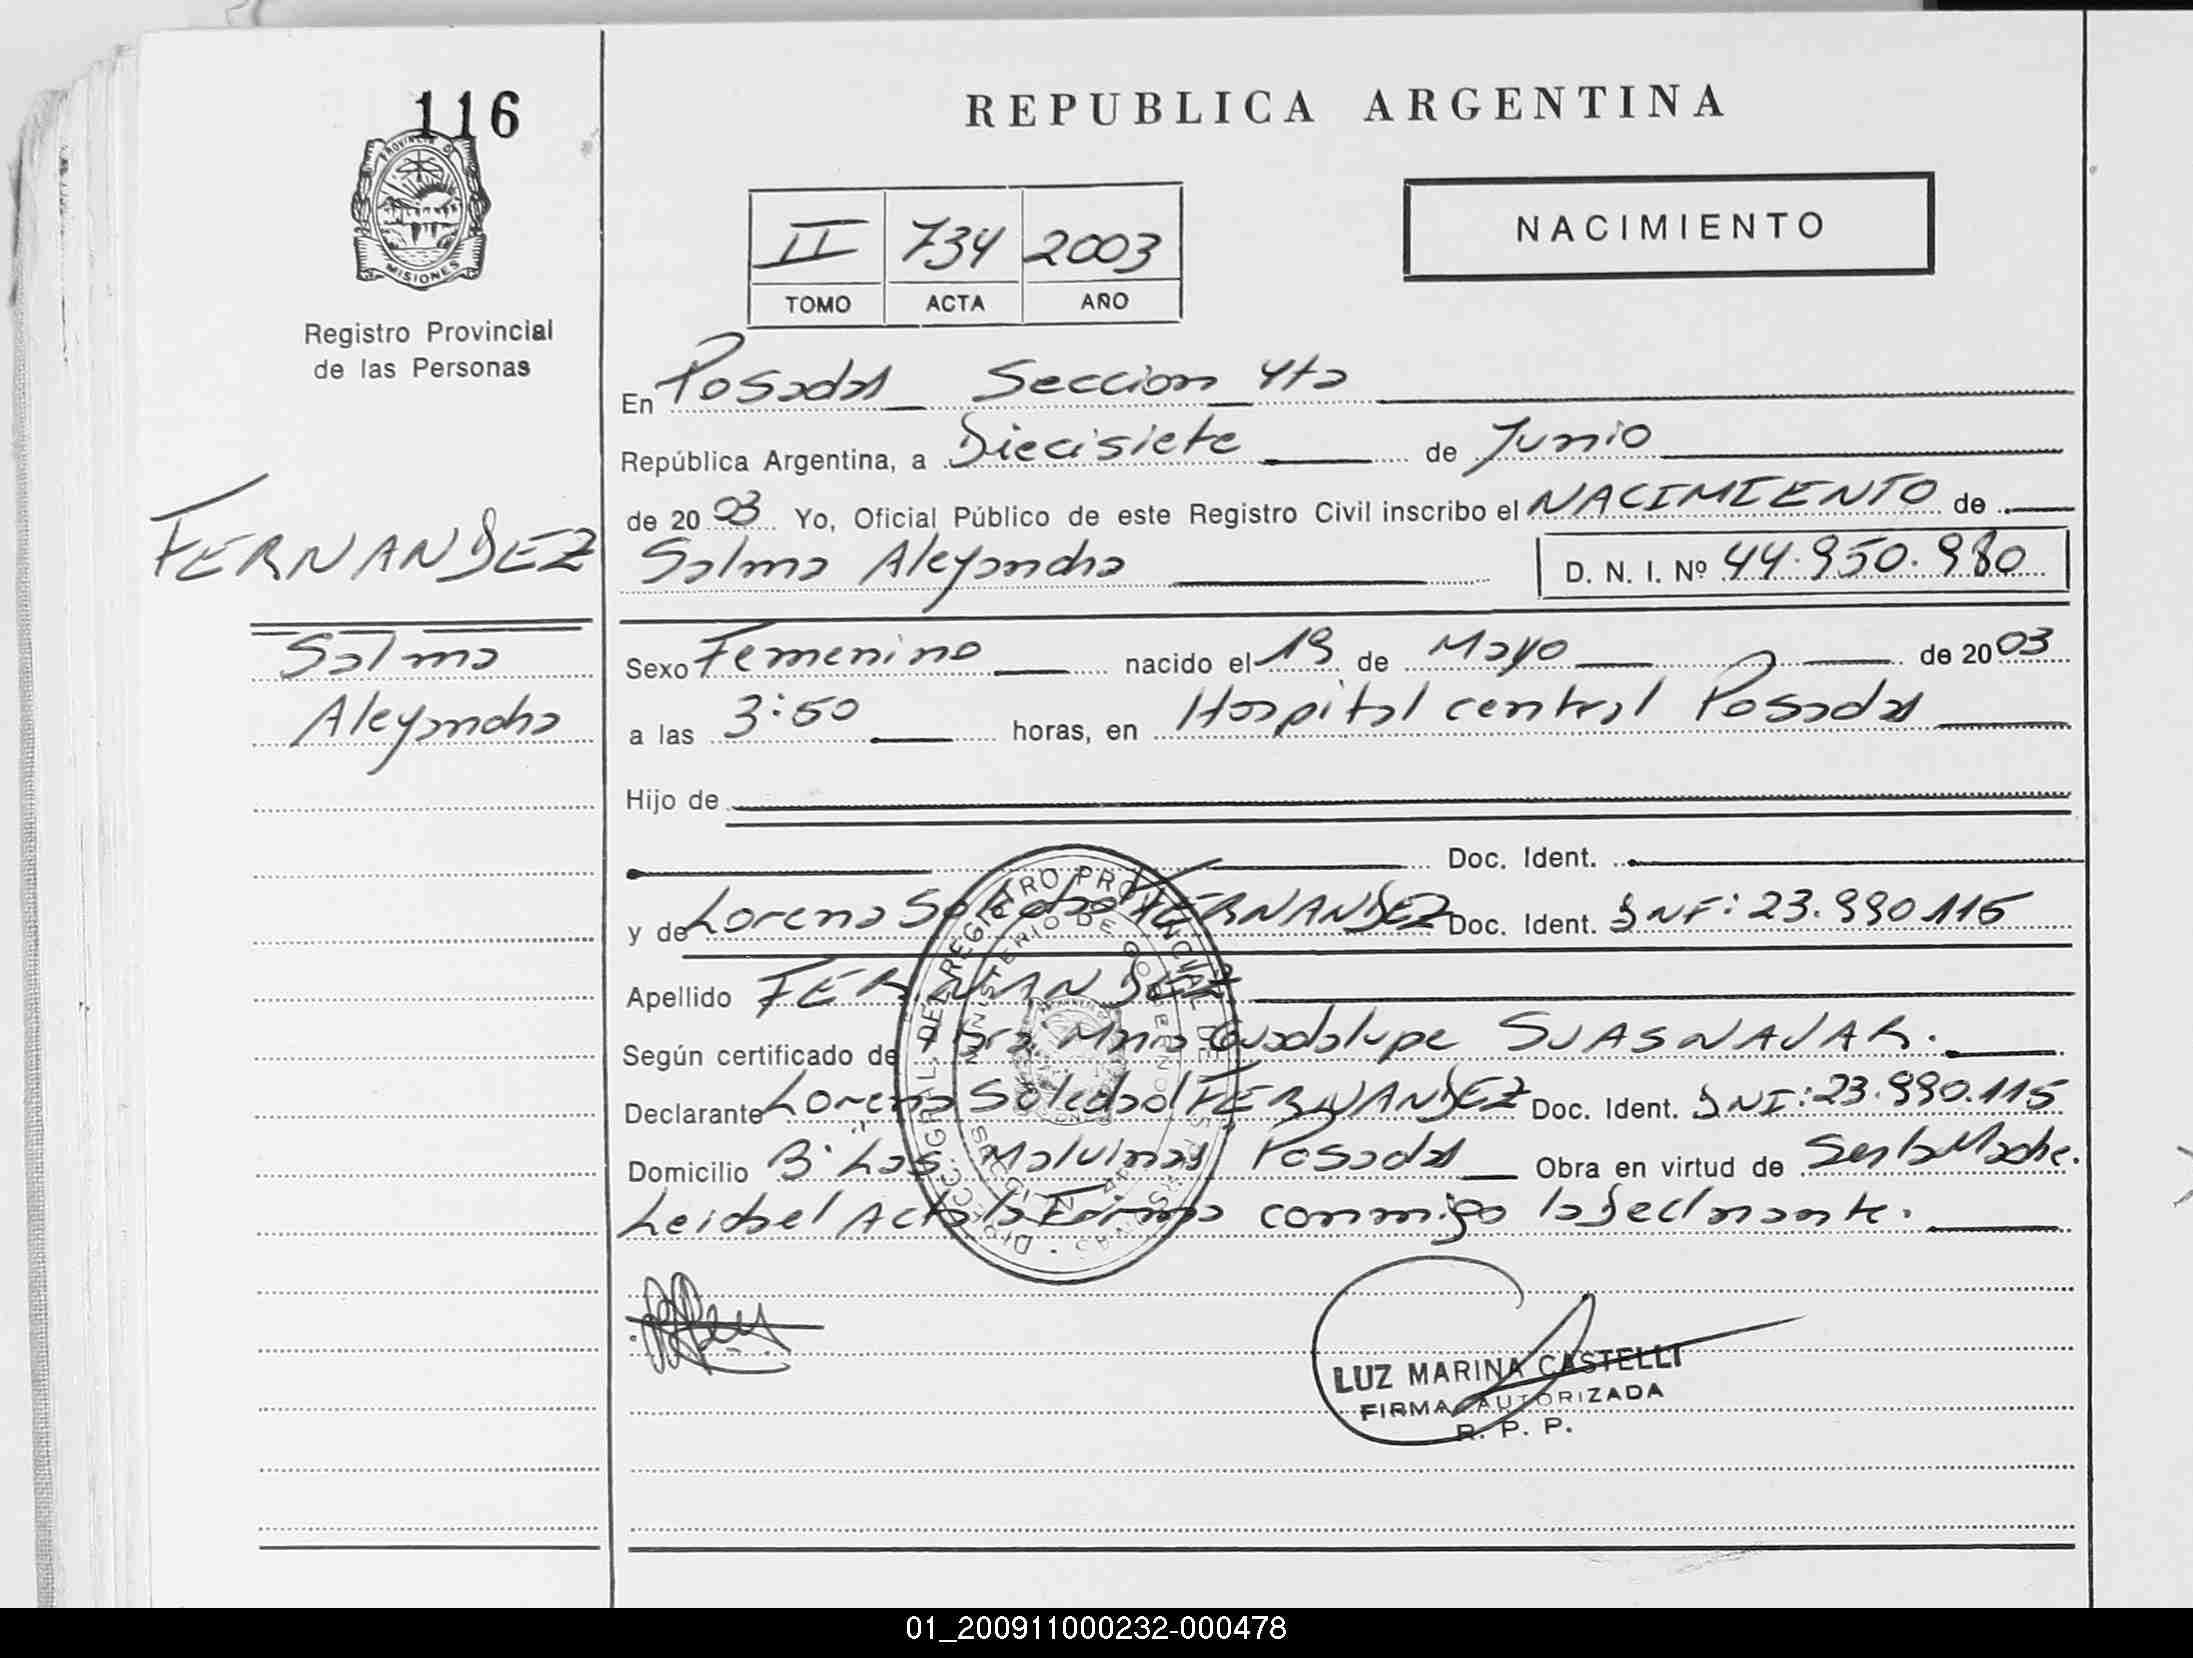 116
PROVINCIA D
MISIONES
Registro Provincial
de las Personas
FERNANDEZ
Salma
Alejandra
REPUBLICA ARGENTINA
II 734 2003
TOMO ACTA AÑO
NACIMIENTO
En Posadas Seccion 4ta
República Argentina, a Diecisiete de Junio
de 2003 Yo, Oficial Público de este Registro Civil inscribo el NACIMIENTO de
Salma Alejandra D. N. I. Nº 44.950.980
Sexo Femenino nacido el 19 de Mayo de 2003
a las 3:50 horas, en Hospital central Posadas
Hijo de
Doc. Ident.
y de Lorena Soledad FERNANDEZ Doc. Ident. DNI: 23.990.115
Apellido FERNANDEZ
Según certificado de Maria Guadalupe SUASNAJAR.
Declarante Lorena Soledad FERNANDEZ Doc. Ident. DNI: 23.990.115
Domicilio B° Las Malvinas Posadas Obra en virtud de Ser la Madre.
Leida el Acta la Firma conmigo la Declarante.
LUZ MARINA CASTELLI
FIRMA AUTORIZADA
R. P. P.
01_200911000232-000478